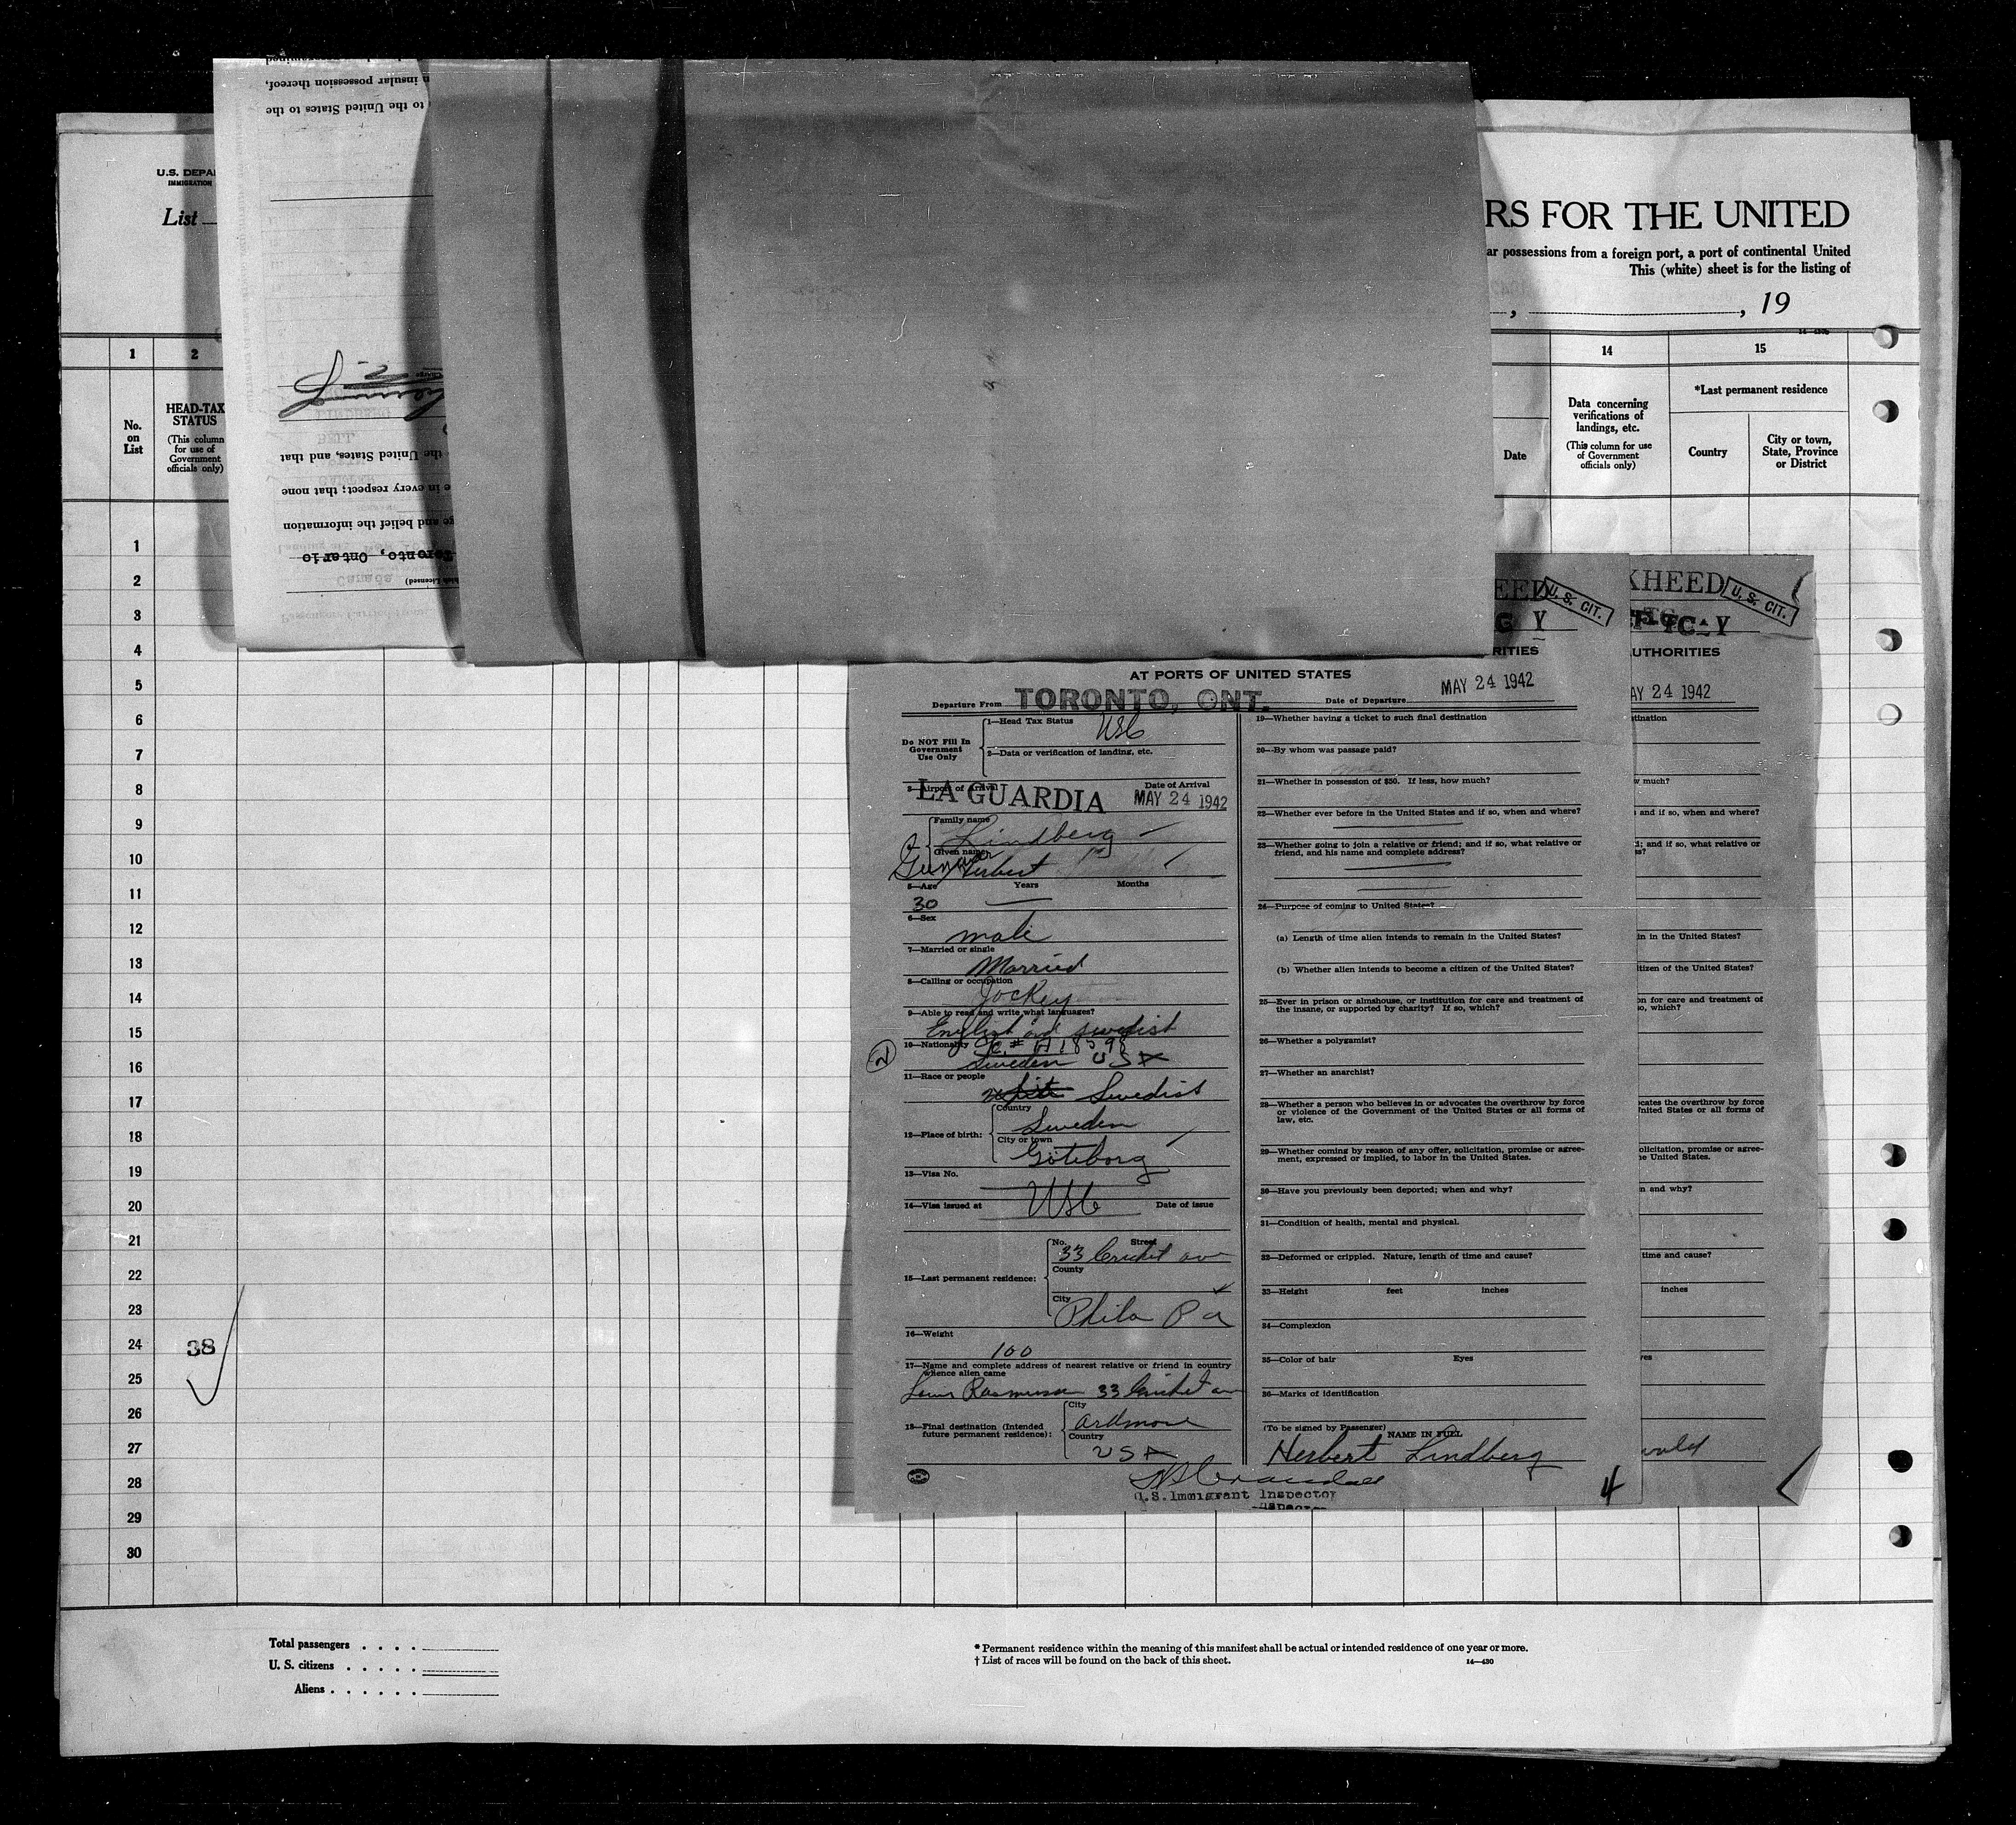 n insular possession thereof,
to the United States to the
the United States, and that
e in every respect; that none
ge and belief the information
Toronto, Ontario
U.S. DEPA
IMMIGRATION
List
RS FOR THE UNITED
ar possessions from a foreign port, a port of continental United
This (white) sheet is for the listing of
, , 19
1 2 14 15
No. on List
HEAD-TAX STATUS
(This column for use of Government officials only)
Date
Data concerning verifications of landings, etc.
(This column for use of Government officials only)
*Last permanent residence
Country
City or town, State, Province or District
1
2
3
4
5
6
7
8
9
10
11
12
13
14
15
16
17
18
19
20
21
22
23
24
25
26
27
28
29
30
38
EED U. S. CIT.
G Y
RITIES
AT PORTS OF UNITED STATES
Departure From TORONTO, ONT. Date of Departure MAY 24 1942
Do NOT Fill In Government Use Only
1—Head Tax Status USC
2—Data or verification of landing, etc.
3—Airport of Arrival LA GUARDIA Date of Arrival MAY 24 1942
4 Family name Lindberg
Given name Gunnar Herbert
5—Age Years Months
30
6—Sex
male
7—Married or single
Married
8—Calling or occupation
Jockey
9—Able to read and write what languages?
English and Swedist
10—Nationality
2
Sweden USA
11—Race or people
Swedist
12—Place of birth: Country
Sweden
City or town
Göteborg
13—Visa No.
14—Visa issued at USC Date of issue
15—Last permanent residence: No. Street
33 Cricket av
County
City
Phila Pa
16—Weight
100
17—Name and complete address of nearest relative or friend in country whence alien came
33 Cricket av
18—Final destination (Intended future permanent residence): City
Ardmore
Country
USA
19—Whether having a ticket to such final destination
20—By whom was passage paid?
21—Whether in possession of $50. If less, how much?
22—Whether ever before in the United States and if so, when and where?
23—Whether going to join a relative or friend; and if so, what relative or friend, and his name and complete address?
24—Purpose of coming to United States?
(a) Length of time alien intends to remain in the United States?
(b) Whether alien intends to become a citizen of the United States?
25—Ever in prison or almshouse, or institution for care and treatment of the insane, or supported by charity? If so, which?
26—Whether a polygamist?
27—Whether an anarchist?
28—Whether a person who believes in or advocates the overthrow by force or violence of the Government of the United States or all forms of law, etc.
29—Whether coming by reason of any offer, solicitation, promise or agreement, expressed or implied, to labor in the United States.
30—Have you previously been deported; when and why?
31—Condition of health, mental and physical.
32—Deformed or crippled. Nature, length of time and cause?
33—Height feet inches
34—Complexion
35—Color of hair Eyes
36—Marks of identification
(To be signed by Passenger) NAME IN FULL
Herbert Lindberg
U.S. Immigrant Inspector
4
KHEED U. S. CIT.
UTHORITIES
AY 24 1942
stination
w much?
and if so, when and where?
d; and if so, what relative or
ss?
in in the United States?
itizen of the United States?
on for care and treatment of
so, which?
ocates the overthrow by force
United States or all forms of
olicitation, promise or agree-
he United States.
n and why?
time and cause?
inches
yes
wald
Total passengers . . . .
U. S. citizens . . . . .
Aliens . . . . . .
* Permanent residence within the meaning of this manifest shall be actual or intended residence of one year or more.
† List of races will be found on the back of this sheet.
14—430